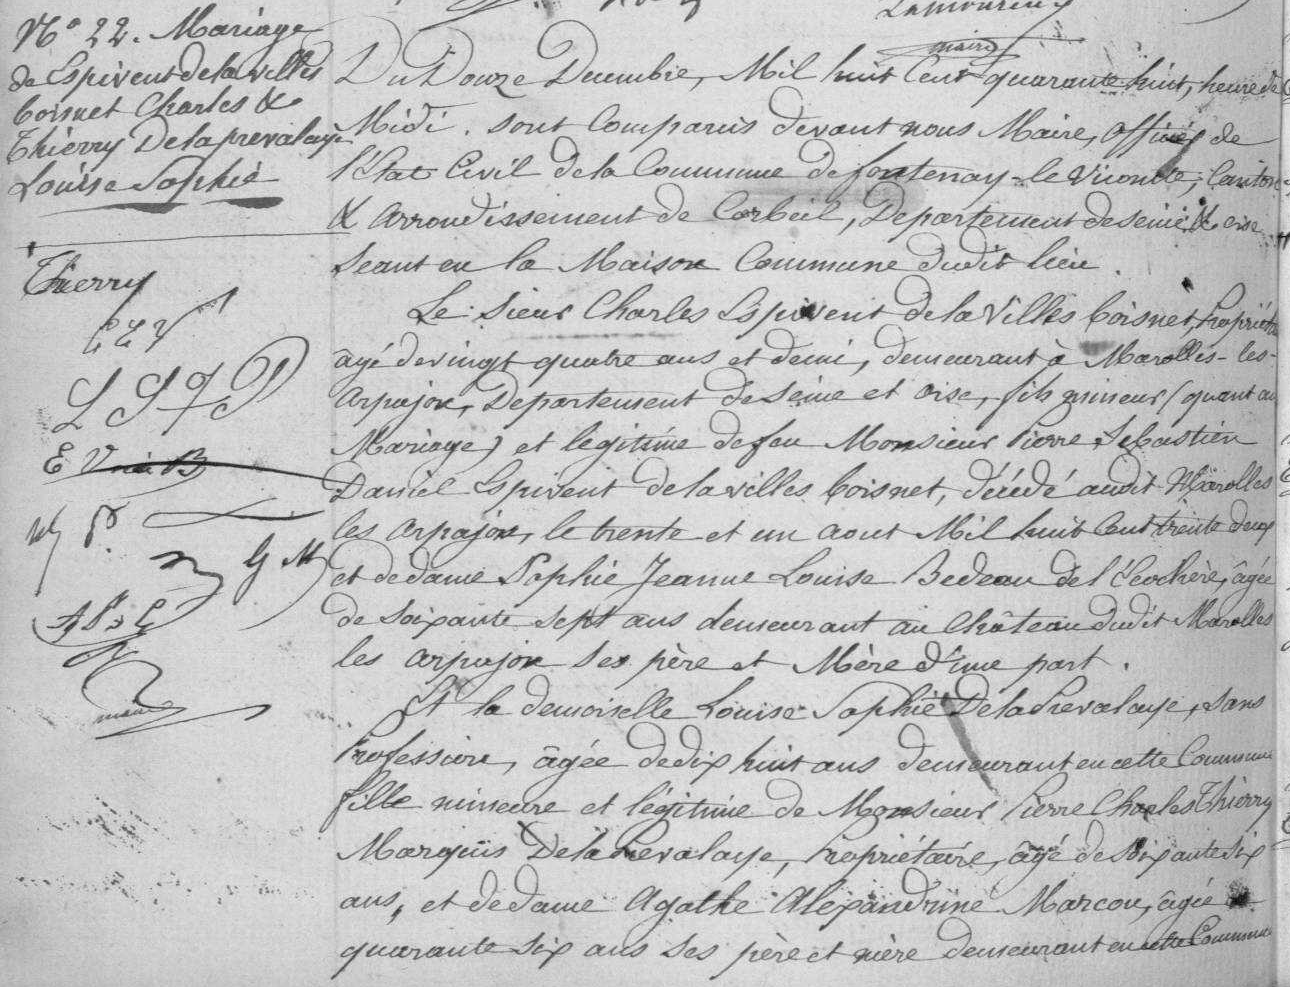 N° 22. Mariage
de Espivent de la villes
boisnet Charles &
Thierry Delaprevalaye
Louise Sophie
Thierry
L S T P
G M
maire
maire
Du Douze Decembre, Mil huit Cent quarante huit, heure de
Midi. sont Comparus devant nous Maire, officier de
l'état Civil de la Commune de fontenay-le Vicomte, Canton
& arrondissement de Corbeil, Departement de seine & oise
seant en la Maison Commune dudit lieu.
Le sieur Charles Espivent de la Villes boisnet, Propriétre
agé de vingt quatre ans et demi, demeurant à Marolles-les-
arpajon, Departement de seine et oise, fils mineur (quant au
Mariage) et legitime de feu Monsieur Pierre, Sebastien
Daniel Espivent de la villes boisnet, décédé audit Marolles
les arpajon, le trente et un aout Mil huit Cent trente deux
et de dame Sophie Jeanne Louise Bedeau de l'écochère, âgée
de soixante sept ans demeurant au Château dudit Marolles
les arpajon ses père et Mère d'une part.
Et la demoiselle Louise Sophie De la Prevalaye, sans
Profession, âgée de dix huit ans demeurant en cette Commune
fille mineure et légitime de Monsieur Pierre Charles Thierry
Marquis De la Prevalaye, Propriétaire, âgé de soixante six
ans, et de dame Agathe Alexandrine Marcou, âgée de
quarante six ans ses père et mère demeurant en cette Commune